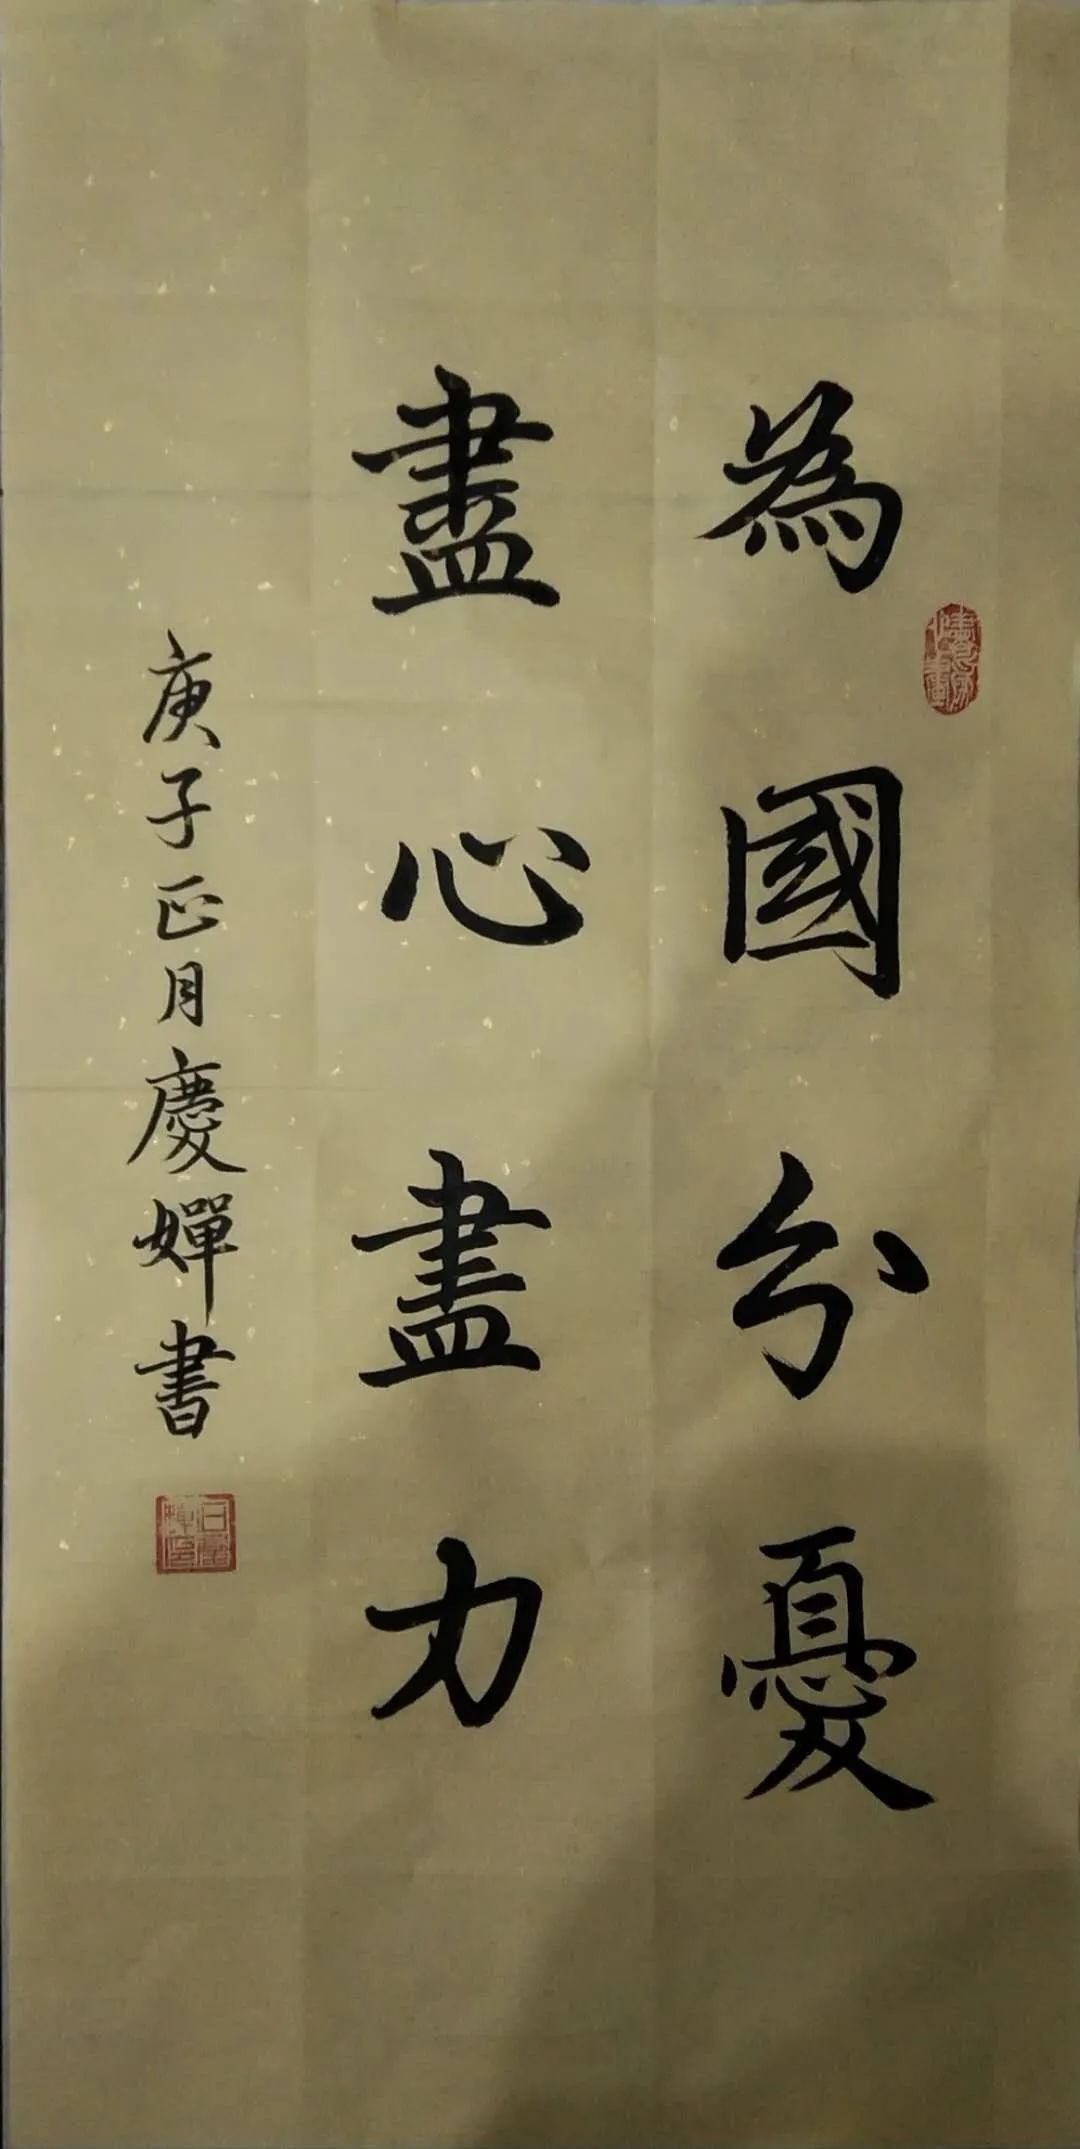 為國分憂
盡心盡力
庚子正月慶嬋書